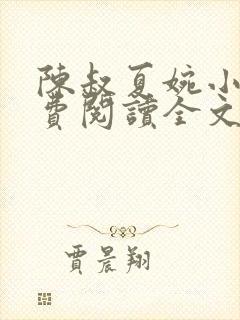 陳叔夏婉小
費閱讀全文
賈晨翔